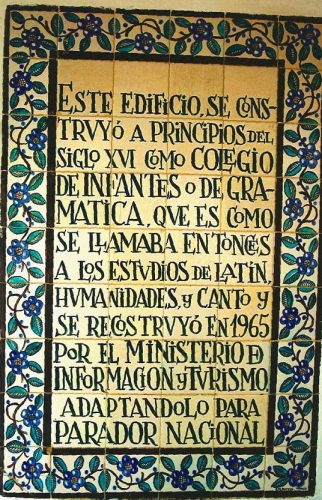 ESTE EDIFICIO, SE CONS-
TRVYÓ A PRINCIPIOS DEL
SIGLO XVI COMO COLEGIO
DE INFANTES O DE GRA-
MATICA, QVE ES COMO
SE LLAMABA ENTONCES
A LOS ESTVDIOS DE LATIN,
HVMANIDADES, Y CANTO Y
SE RECOSTRVYÓ EN 1965
POR EL MINISTERIO DE
INFORMACION Y TVRISMO,
ADAPTANDOLO PARA
PARADOR NACIONAL